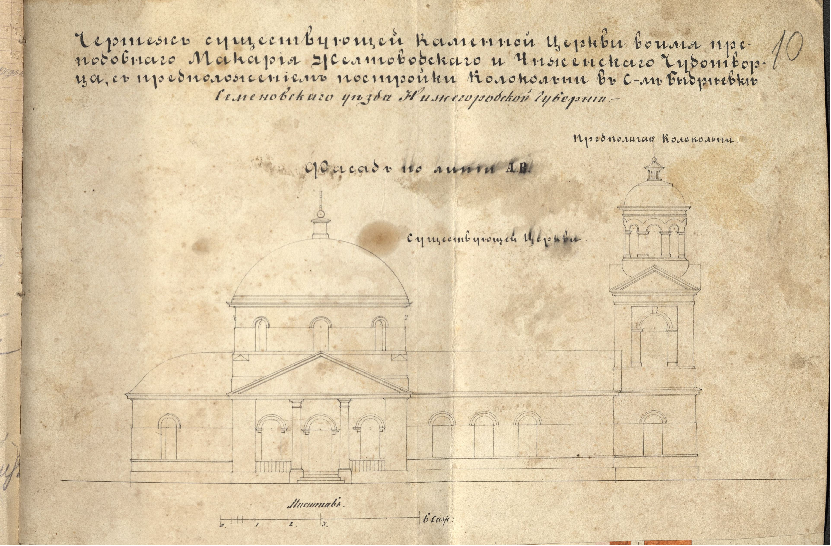 Чертежъ существующей Каменной Церкви во имя пре-
подобнаго Макарія Желтоводскаго и Унженскаго Чудотвор-
ца, съ предположеніемъ постройки Колокольни въ С-лѣ
Семеновскаго уѣзда Нижегородской Губерніи.-
10
Предполагае. Колокольни
Фасадъ по линіи АВ.
Существующей Церкви.
Масштабъ.
1. 2. 3. 6 саж: